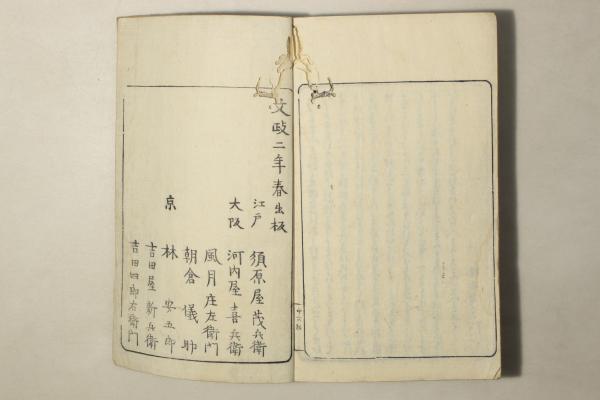 文政二年春出板
江戸 須原屋茂兵衛
大阪 河内屋喜兵衛
風月庄左衛門
朝倉儀助
京 林安五郎
吉田屋新兵衛
吉田四郎右衛門